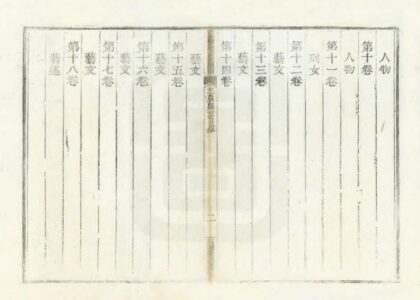 人物
第十卷
人物
第十一卷
列女
第十二卷
藝文
第十三卷
藝文
第十四卷
藝文
第十五卷
藝文
第十六卷
藝文
第十七卷
藝文
第十八卷